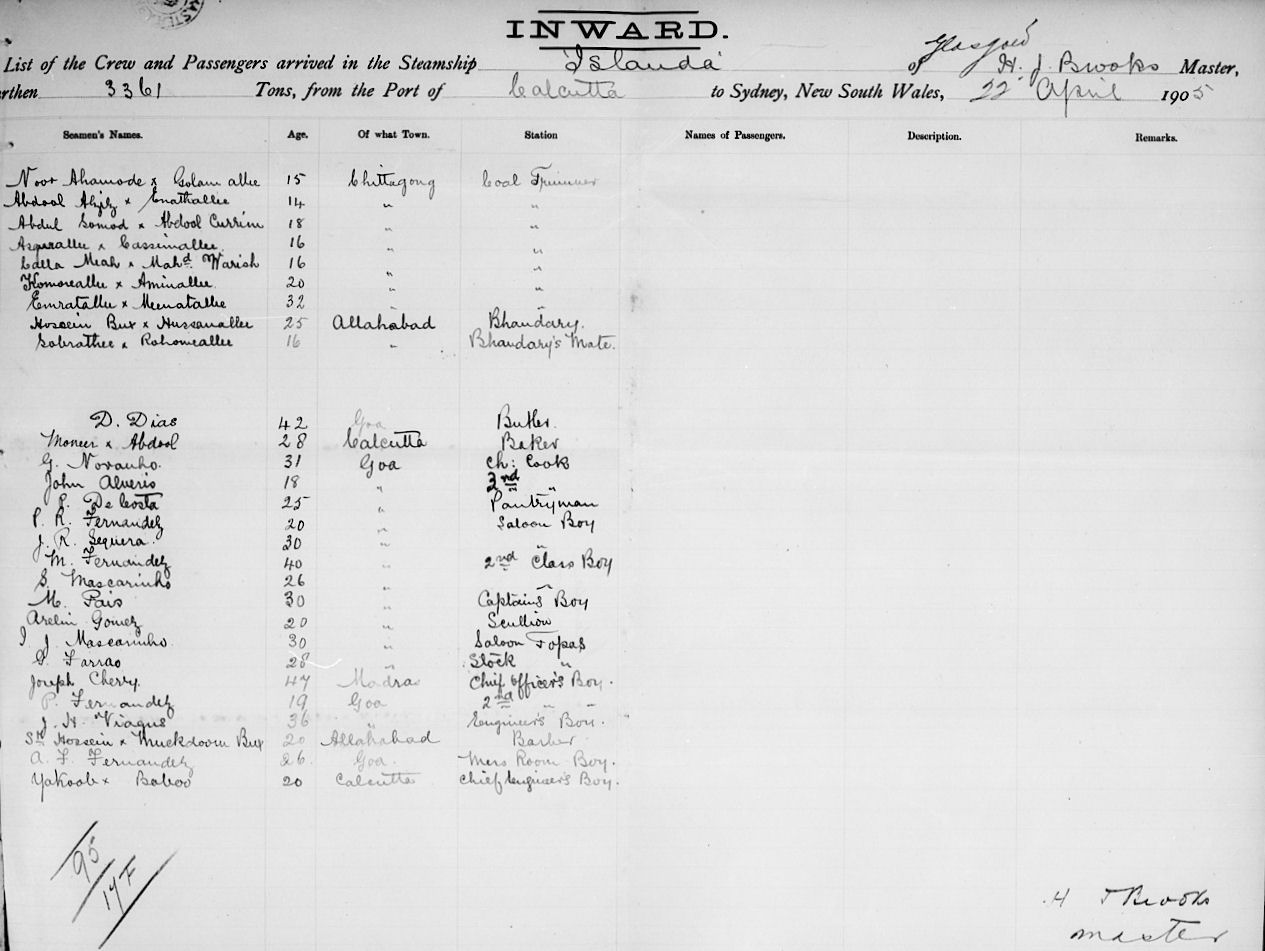 INWARD.
List of the Crew and Passengers arrived in the Steamship 'Islanda' of Glasgow H. J Brooks Master,
rthen 3361 Tons, from the Port of Calcutta to Sydney, New South Wales, 22 April 1905
Seamen's Names. Age. Of what Town. Station Names of Passengers. Description. Remarks.
Noor Ahamode x Golam allee 15 Chittagong Coal Trimmer
Abdool x Enathallee 14 " "
Abdul Somod x Abdool Currim 18 " "
Asgerallee x Cassimallee 16 " "
Lalla Meah x Mahd. Warish 16 " "
Komoreallee x Aminallee 20 " "
Emratallee x Meenatallee 32 " "
Hossein Bux x Hussanallee 25 Allahabad Bhandary.
Sobrathee x Rohomeallee 16 " Bhandary's Mate.
D. Dias 42 Goa Butler
Moneer x Abdool 28 Calcutta Baker
G. Noranho. 31 Goa Ch: Cook
John Alveris 18 " 2nd "
De Costa 25 " Pantryman
P. R. Fernandez 20 " Saloon Boy
J. R. Sequera. 30 " "
M. Fernandez 40 " 2nd Class Boy
S. Mascarinho 26 " "
M. Pais 30 " Captain's Boy
Arelin Gomez 20 " Scullion
I. J. Mascarinho. 30 " Saloon Topas
Farrao 28 " Stock "
Joseph Cherry. 47 Madras Chief Officer's Boy.
P. Fernandez 19 Goa 2nd " "
J. H. Viagus 36 " Engineer's Boy. "
Sk Hossein x Muckdoom Bux 20 Allahabad Barber
A. F. Fernandez 26 Goa. Mess Room Boy.
Yakoob x Baboo 20 Calcutta Chief Engineer's Boy.
95
17F
H J Brooks
master